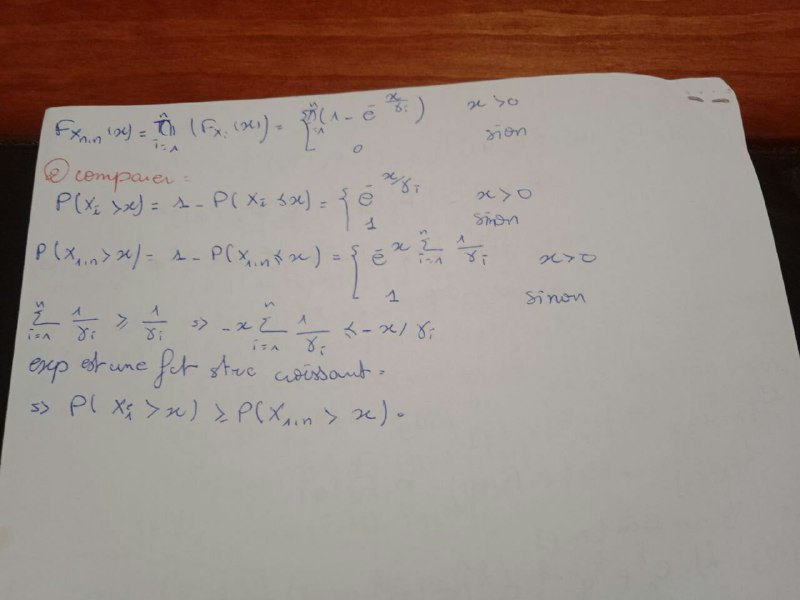 F_{X_{n,n}}(x) = ∏_{i=1}^{n} (F_{X_i}(x)) = { ∏_{i=1}^{n} (1 - e^{-x/γ_i}) x>0
0 sion
② comparer :
P(X_i > x) = 1 - P(X_i ≤ x) = { e^{-x/γ_i} x>0
1 sinon
P(X_{1,n} > x) = 1 - P(X_{1,n} ≤ x) = { e^{-x ∑_{i=1}^{n} 1/γ_i} x>0
1 sinon
∑_{i=1}^{n} 1/γ_i ≥ 1/γ_i ⇒ -x ∑_{i=1}^{n} 1/γ_i ≤ -x/γ_i
exp est une fct stre croissant.
⇒ P(X_i > x) ≥ P(X_{1,n} > x).